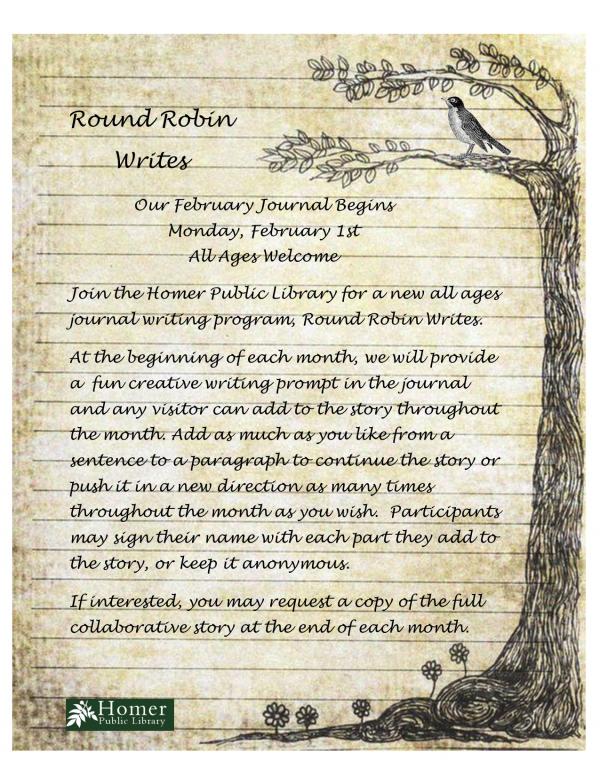 Round Robin
Writes
Our February Journal Begins
Monday, February 1st
All Ages Welcome
Join the Homer Public Library for a new all ages
journal writing program, Round Robin Writes.
At the beginning of each month, we will provide
a fun creative writing prompt in the journal
and any visitor can add to the story throughout
the month. Add as much as you like from a
sentence to a paragraph to continue the story or
push it in a new direction as many times
throughout the month as you wish. Participants
may sign their name with each part they add to
the story, or keep it anonymous.
If interested, you may request a copy of the full
collaborative story at the end of each month.
Homer
Public Library